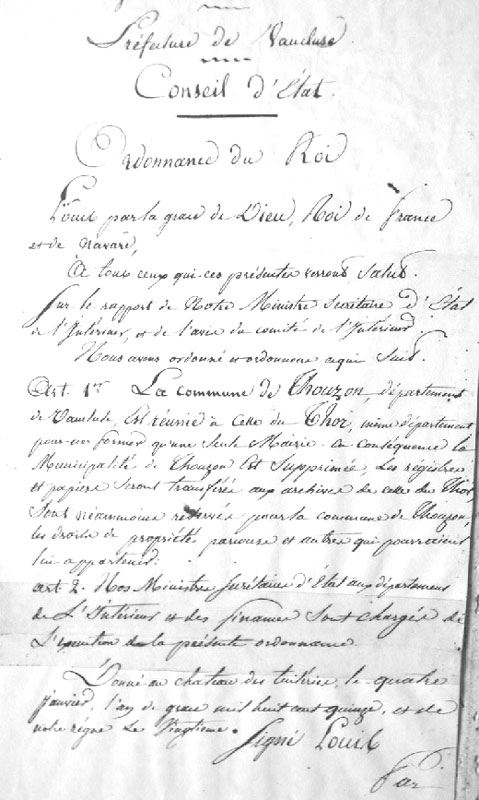 Préfecture de Vaucluse
Conseil d'État.
Ordonnance du Roi
Louis par la grace de Dieu, Roi de france
et de navare,
A tous ceux qui ces présentes verrons Salut.
Sur le rapport de Notre Ministre Secrétaire d'État
de l'Intérieur, et de l'avis du comité de l'Intérieur.
Nous avons ordonné et ordonnons ce qui Suit.
Art. 1er La commune de Thouzon, département
de Vaucluse, Est réunie à celle du Thor, même département
pour ne former qu'une Seule Mairie. En conséquence la
Municipalité de Thouzon Est Supprimée, Les registres
et papiers Seront transférés aux archives de celle du Thor
Sont néanmoins réservés pour la commune de Thouzon,
les droits de propriété, parcours et autres qui pourraient
lui appartenir.
art 2. Nos Ministres Secrétaires d'État aux département
de L'Intérieur et des finances Sont Chargés de
L'exécution de la présente ordonnance
Donné au chateau des tuileries, le quatre
janvier, l'an de grace mil huit cent quinze, et de
notre règne Le Vingtième. Signé Louis
Par